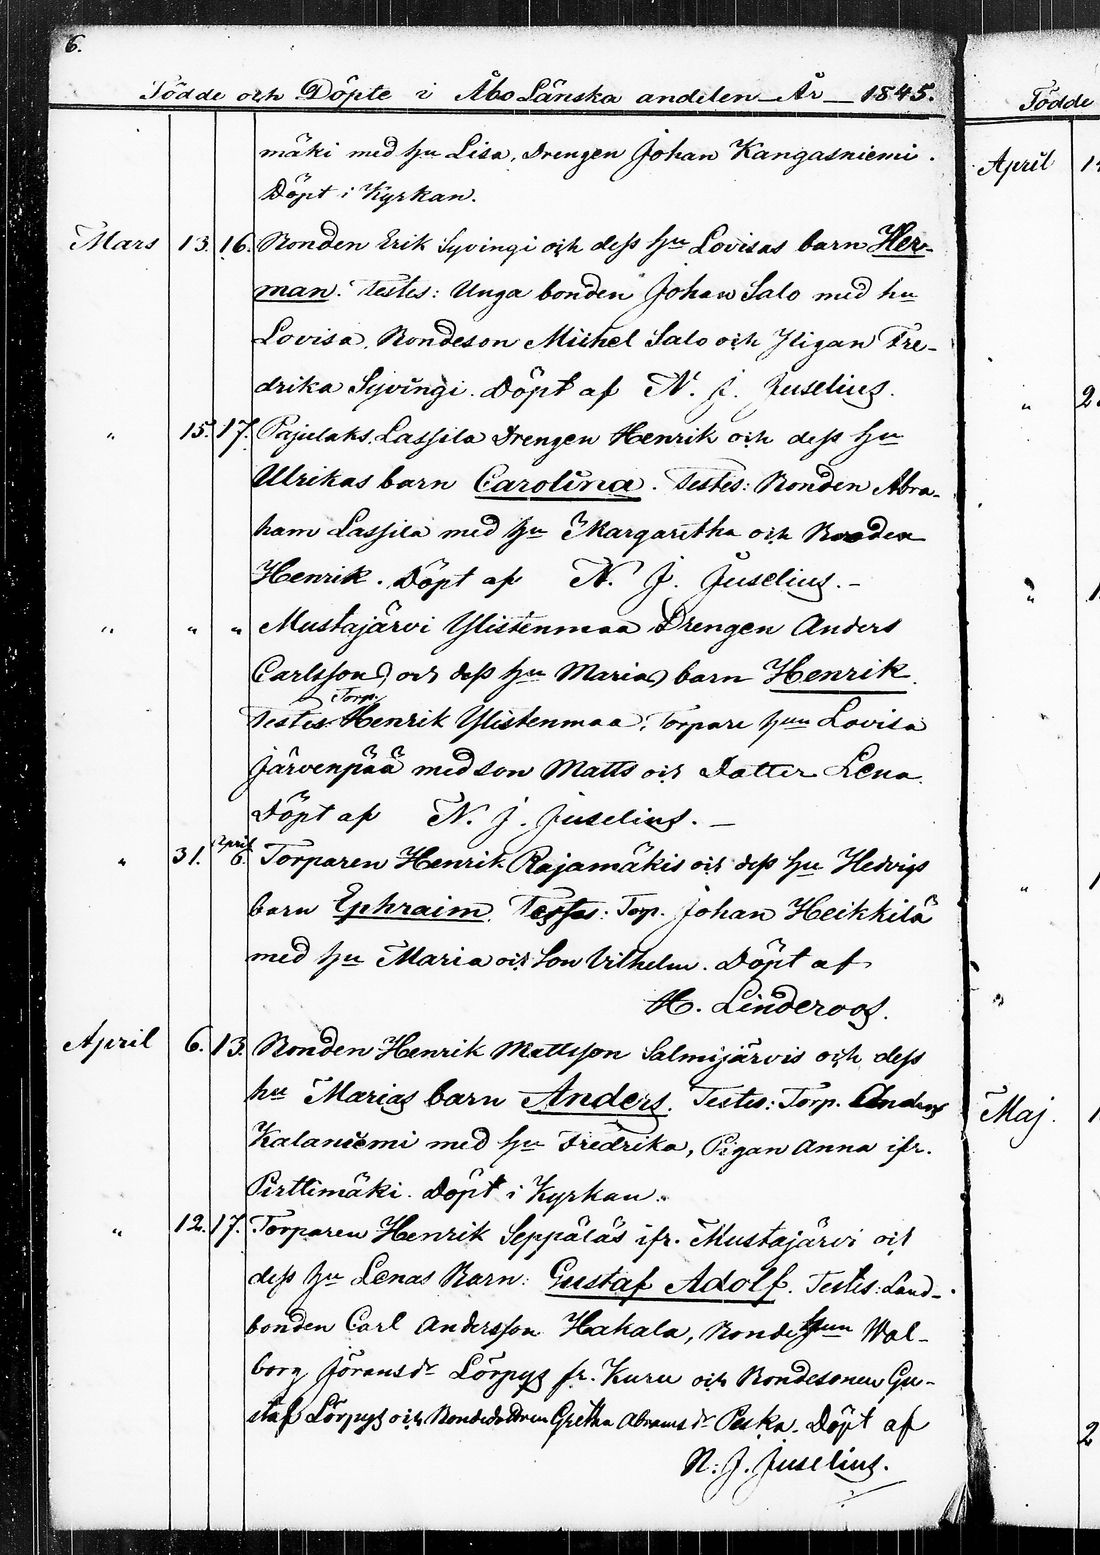 6.
Födde och Döpte i Åbo Länska andelen År 1845.
mäki med hu Lisa, Drengen Johan Kangasniemi.
Döpt i Kyrkan.
Mars 13. 16. Bonden Erik Syvingi och dess hu Lovisas barn Her-
man. Testes: Unga bonden Johan Salo med hu
Lovisa, Bondeson Michel Salo och Pigan Fre-
drika Syvingi. Döpt af N. J. Juselius.
" 15. 17. Pajulaks, Lassila Drengen Henrik och dess hu
Ulrikas barn Carolina. Testes: Bonden Abra-
ham Lassila med hu Margaretha och Bonden
Henrik. Döpt af N. J. Juselius. -
" " " Mustajärvi Ylistenmaa Drengen Anders
Carlsson och dess hu Maria barn Henrik.
Testes Torp. Henrik Ylistenmaa, Torpare hun Lovisa
Järvenpää med son Matts och Datter Lena.
Döpt af N. J. Juselius. -
" 31. April 6. Torparen Henrik Rajamäkis och dess hu Hedvigs
barn Ephraim. Testes: Torp. Johan Heikkilä
med hu Maria och Son Vilhelm. Döpt af
H. Linderoos.
April 6. 13. Bonden Henrik Mattsson Salmijärvis och dess
hu Marias barn Anders. Testes: Torp. Anders
Kalaniemi med hu Fredrika, Pigan Anna ifr.
Pirttimäki. Döpt i Kyrkan.
" 12. 17. Torparen Henrik Seppäläs ifr. Mustajärvi och
dess hu Lenas Barn: Gustaf Adolf. Testes: Land-
bonden Carl Andersson Hakala, Bonde hun Wal-
borg Jöransdr Lörpys fr. Kuru och Bondesonen Gu-
staf Lörpys och Bondedottren Gretha Abrams dr Peska. Döpt af
N: J. Juselius.
Födde
April
"
"
"
"
Maj.